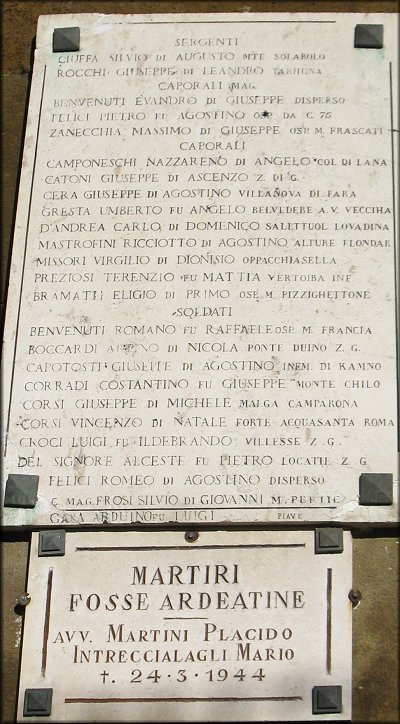 SERGENTI
CIUFFA SILVIO DI AUGUSTO MTE SOLAROLO
ROCCHI GIUSEPPE DI LEANDRO TARHUNA
CAPORALI MAG.
BENVENUTI EVANDRO DI GIUSEPPE DISPERSO
FELICI PIETRO FU AGOSTINO OSP. DA C. 75
ZANECCHIA MASSIMO DI GIUSEPPE OSP. M. FRASCATI
CAPORALI
CAMPONESCHI NAZZARENO DI ANGELO COL DI LANA
CATONI GIUSEPPE DI ASCENZO Z. DI G.
CERA GIUSEPPE DI AGOSTINO VILLANOVA DI FARA
GRESTA UMBERTO FU ANGELO BELVEDERE A. V. VECCIHA
D'ANDREA CARLO DI DOMENICO SALETTUOL LOVADINA
MASTROFINI RICCIOTTO DI AGOSTINO ALTURE FLONDAR
MISSORI VIRGILIO DI DIONISIO OPPACCHIASELLA
PREZIOSI TERENZIO FU MATTIA VERTOIBA INF
BRAMATII ELIGIO DI PRIMO OSP. M. PIZZIGHETTONE
SOLDATI
BENVENUTI ROMANO FU RAFFAELE OSP. M. FRANCIA
BOCCARDI DI NICOLA PONTE DUINO Z. G.
CAPOTOSTI GIUSEPPE DI AGOSTINO INEM. DI KAMNO
CORRADI COSTANTINO FU GIUSEPPE MONTE CHILO
CORSI GIUSEPPE DI MICHELE MALGA CAMPARONA
CORSI VINCENZO DI NATALE FORTE ACQUASANTA ROMA
CROCI LUIGI FU ILDEBRANDO VILLESSE Z. G.
DEL SIGNORE ALCESTE FU PIETRO LOCATIE Z. G
FELICI ROMEO DI AGOSTINO DISPERSO
C. MAG. FROSI SILVIO DI GIOVANNI M.
ARDUINO FU LUIGI PIAVE
MARTIRI
FOSSE ARDEATINE
AVV. MARTINI PLACIDO
INTRECCIALAGLI MARIO
†. 24·3·1944